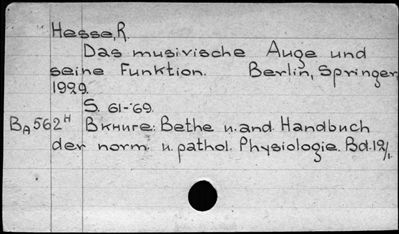 Hesse, R.
Das musivische Auge und
seine Funktion. Berlin, Springer,
1929.
S. 61-69.
BA562H В книге: Bethe u. and. Handbuch
der norm. u. pathol. Physiologie. Bd. 12/1.